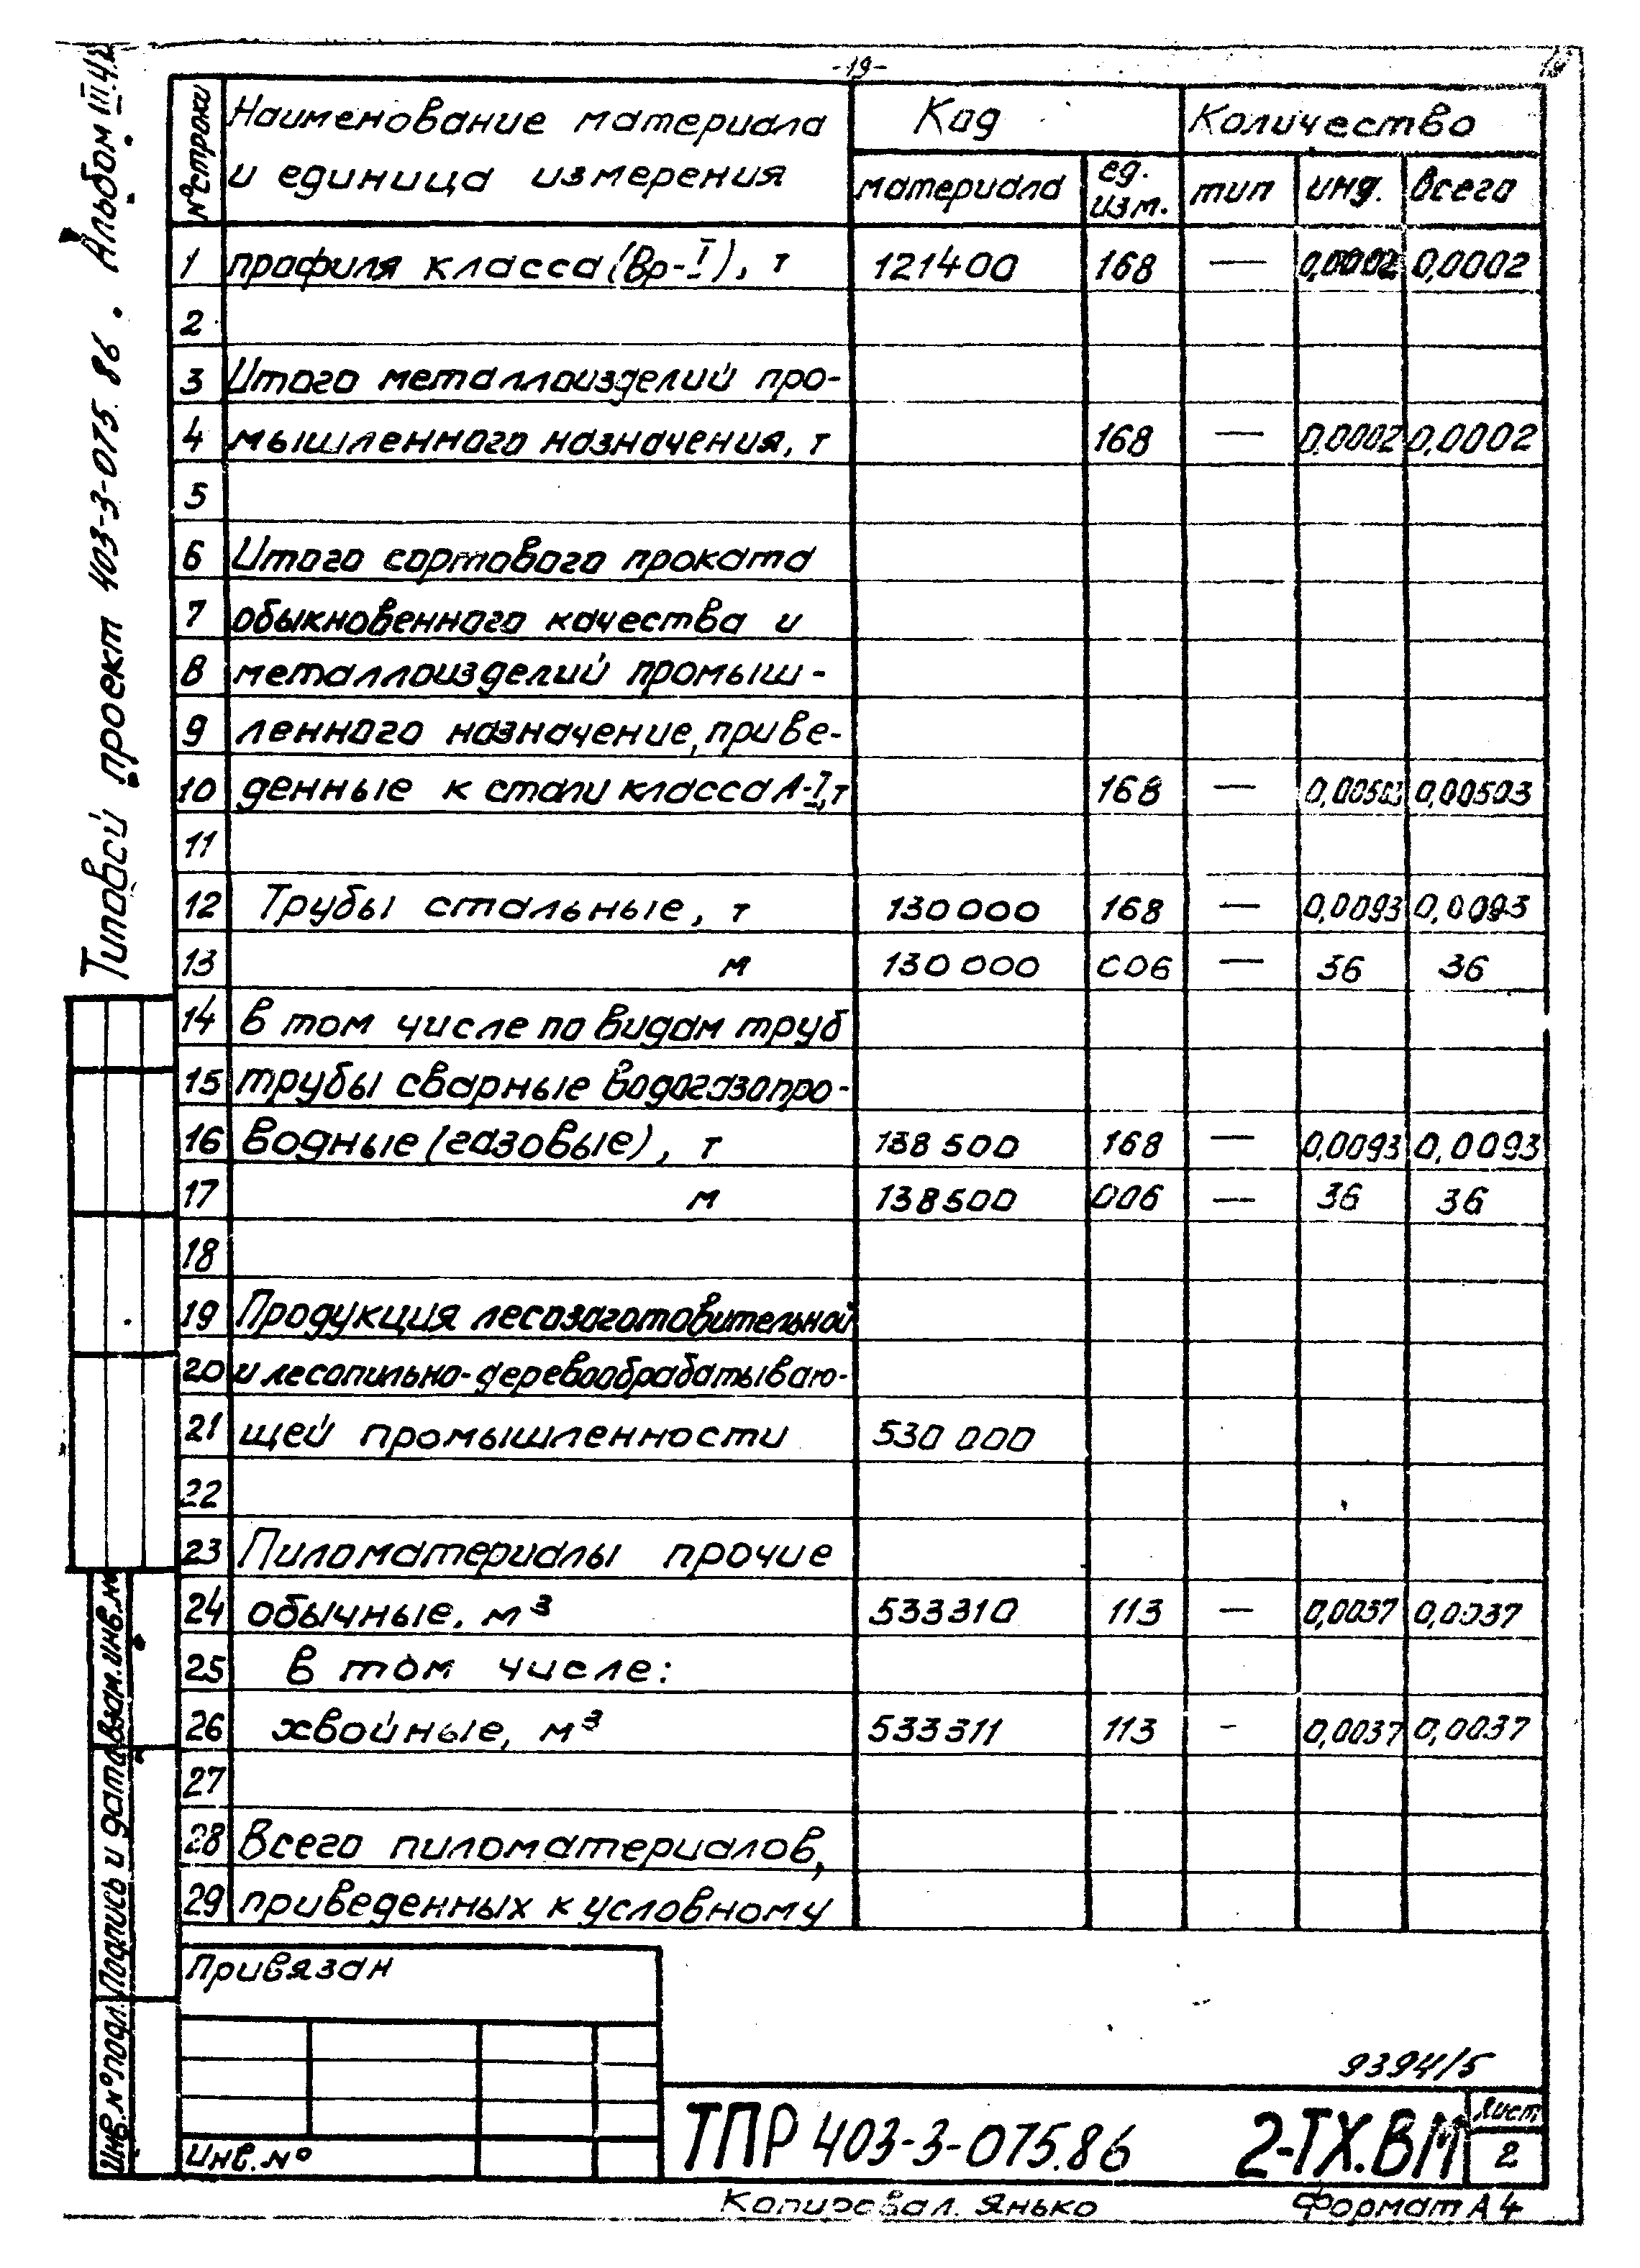 -19-
19
Типовой проект 403-3-075.86. Альбом III.4.2
№ строки
Наименование материала
и единица измерения
Код
Количество
материала
ед.
изм.
тип
инд.
всего
1 профиля класса (Вр-I), т 121400 168 — 0,0002 0,0002
2
3 Итого металлоизделий про-
4 мышленного назначения, т 168 — 0,0002 0,0002
5
6 Итого сортового проката
7 обыкновенного качества и
8 металлоизделий промыш-
9 ленного назначение, приве-
10 денные к стали класса А-I, т 168 — 0,00503 0,00503
11
12 Трубы стальные, т 130000 168 — 0,0093 0,0093
13 м 130000 006 — 36 36
14 в том числе по видам труб
15 трубы сварные водогазопро-
16 водные (газовые), т 138500 168 — 0,0093 0,0093
17 м 138500 006 — 36 36
18
19 Продукция лесозаготовительной
20 и лесопильно-деревообрабатываю-
21 щей промышленности 530000
22
23 Пиломатериалы прочие
24 обычные, м³ 533310 113 — 0,0037 0,0037
25 в том числе:
26 хвойные, м³ 533311 113 - 0,0037 0,0037
27
28 Всего пиломатериалов,
29 приведенных к условному
Взам. инв. №
Подпись и дата
Инв. № подл.
Привязан
Инв. №
9394/5
ТПР 403-3-075.86 2-ТХ.ВМ
Лист
2
Копировал. Янько Формат А4